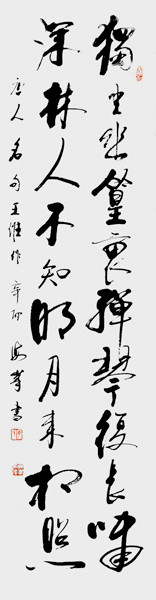 獨坐幽篁裏彈琴復長嘯
深林人不知明月來相照
唐人名句王維作辛卯海書